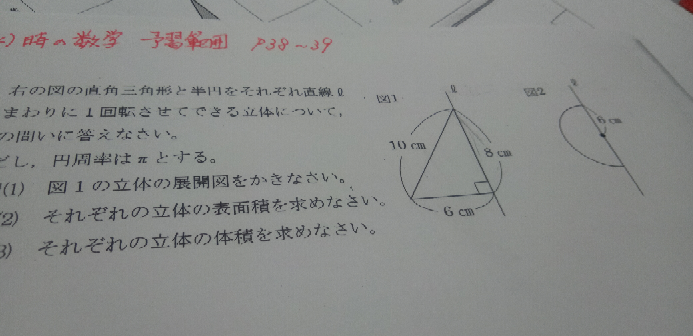 時の数学 予習範囲 P38～39
右の図の直角三角形と半円をそれぞれ直線ℓ
まわりに1回転させてできる立体について,
の問いに答えなさい。
だし,円周率はπとする。
(1) 図1の立体の展開図をかきなさい。
(2) それぞれの立体の表面積を求めなさい。
3) それぞれの立体の体積を求めなさい。
図1
ℓ
10 cm
8 cm
6 cm
図2
ℓ
6 cm